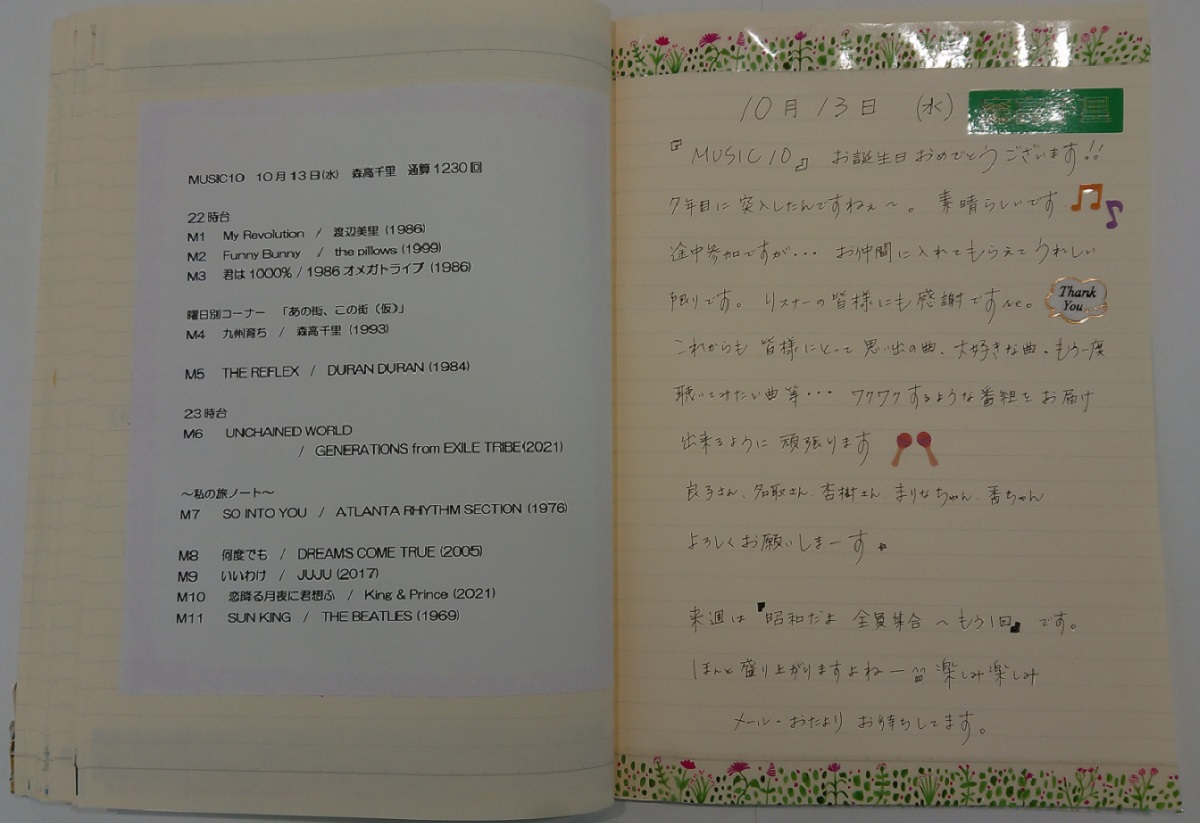 MUSIC10 10月13日(水) 森高千里 通算1230回
22時台
M1 My Revolution / 渡辺美里 (1986)
M2 Funny Bunny / the pillows (1999)
M3 君は1000% / 1986オメガトライブ (1986)
曜日別コーナー 「あの街、この街(仮)」
M4 九州育ち / 森高千里 (1993)
M5 THE REFLEX / DURAN DURAN (1984)
23時台
M6 UNCHAINED WORLD
/ GENERATIONS from EXILE TRIBE(2021)
~私の旅ノート~
M7 SO INTO YOU / ATLANTA RHYTHM SECTION (1976)
M8 何度でも / DREAMS COME TRUE (2005)
M9 いいわけ / JUJU (2017)
M10 恋降る月夜に君想ふ / King & Prince (2021)
M11 SUN KING / THE BEATLES (1969)
10月13日 (水) 森高千里
『MUSIC10』 お誕生日おめでとうございます!!
7年目に突入したんですねぇ~。 素晴らしいです
途中参加ですが・・・ お仲間に入れてもらえてうれしい
限りです。 リスナーの皆様にも感謝です。
Thank
You...
これからも 皆様にとって 思い出の曲、大好きな曲・もう一度
聴いてみたい曲等・・・ ワクワクするような番組を お届け
出来るように 頑張ります
良子さん、名取さん、杏樹さん、まりなちゃん、香ちゃん
よろしくお願いしまーす
来週は『昭和だよ 全員集合 ~もう1回』です。
ほんと盛り上がりますよねー 楽しみ楽しみ
メール・おたより お待ちしてます。